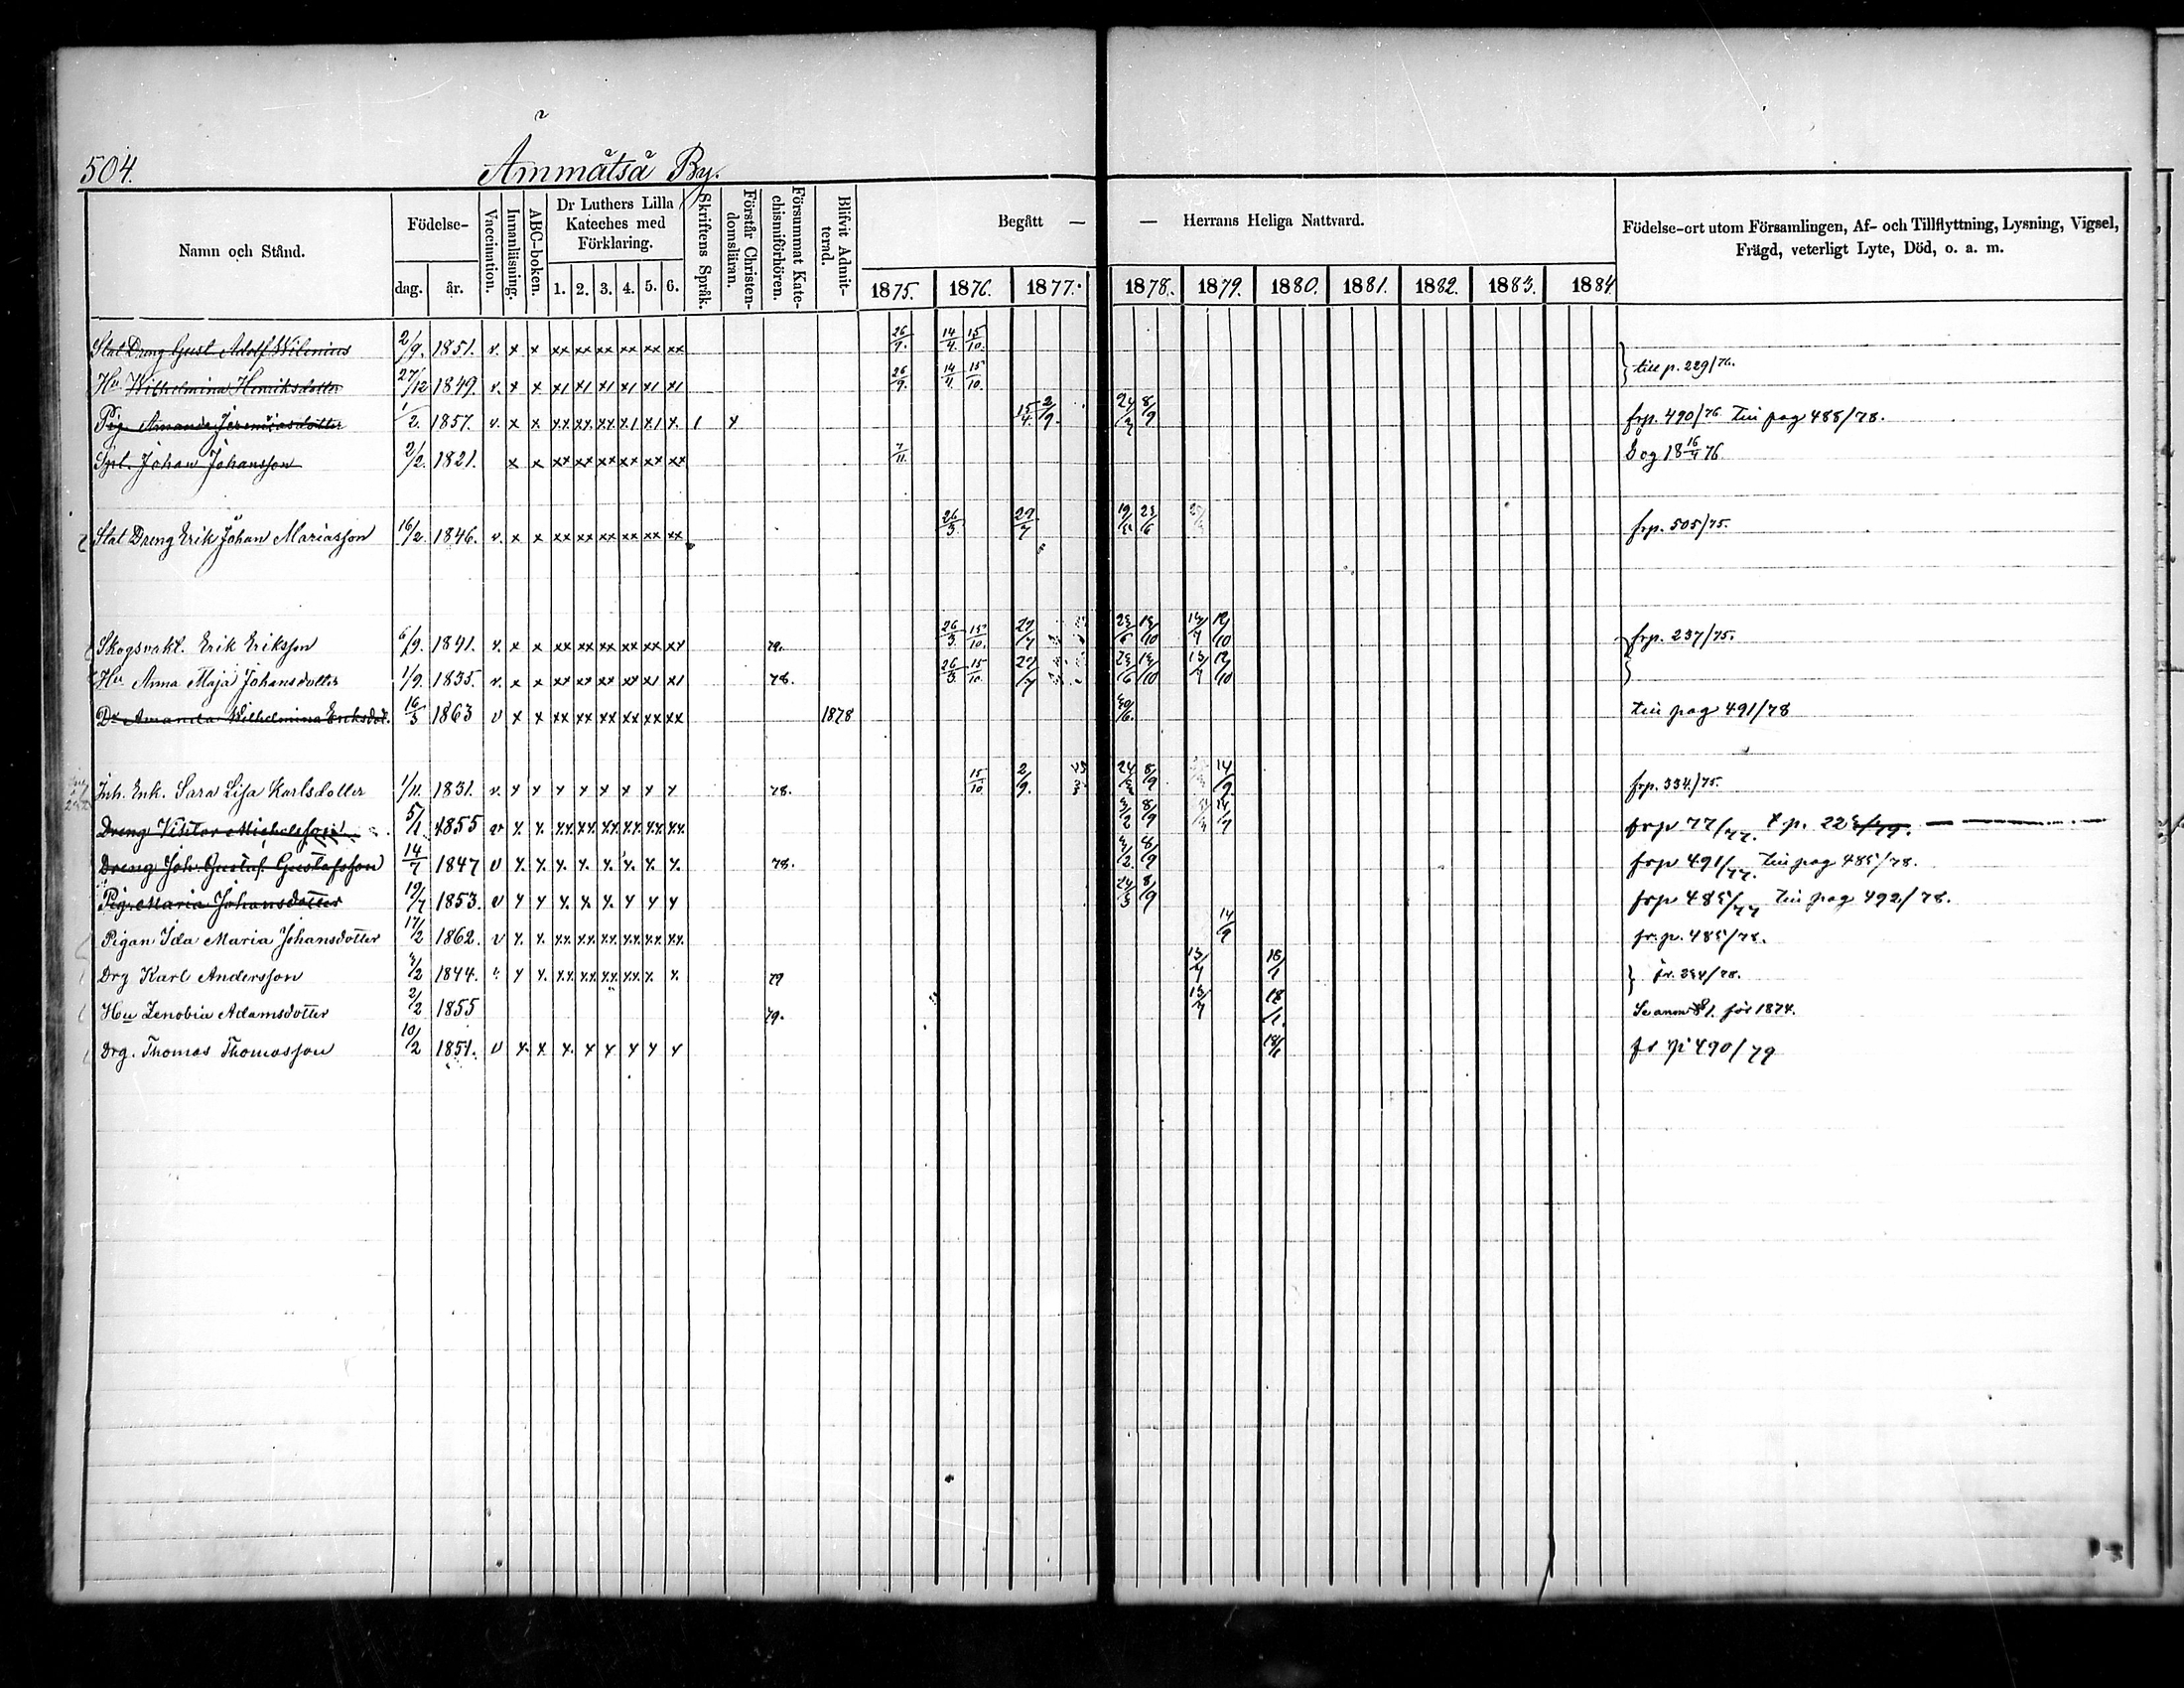 504.
Åmmätsä By.
Namn och Stånd.
Födelse-
dag.
år.
Vaccination.
Innanläsning.
ABC-boken.
Dr Luthers Lilla
Kateches med
Förklaring.
1. 2. 3. 4. 5. 6.
Skriftens Språk.
Förstår Christen-
domsläran.
Försummat Kate-
chismiförhören.
Blifvit Admit-
terad.
Begått — — Herrans Heliga Nattvard.
1875. 1876. 1877. 1878. 1879. 1880. 1881. 1882. 1883. 1884
Födelse-ort utom Församlingen, Af- och Tillflyttning, Lysning, Vigsel,
Frägd, veterligt Lyte, Död, o. a. m.
Stat Dreng Gust. Adolf Wilenius 2/9. 1851. v. x x xx xx xx xx xx xx 26/9. 14/4. 15/10.
Hu Wilhelmina Henriksdotter 27/12 1849. v. x x x1 x1 x1 x1 x1 x1 26/9. 14/4. 15/10. till p. 229/76.
Pig. Amanda Jeremiasdotter 1/2. 1857. v. x x xx xx xx x1 x1 x. 1 x 15/4. 2/9. 8/9 frp. 490/76 Till pag 488/78.
Spl. Johan Johansson 2/2. 1821. x x xx xx xx xx xx xx 7/11. Dog 18 16/4 76.
Stat Dreng Erik Johan Mariasson 16/2. 1846. v. x x xx xx xx xx xx xx 26/3. frp. 505/75.
Skogsvakt. Erik Eriksson 6/9. 1841. v. x x xx xx xx xx xx xx 26/3. 15/10. frp. 237/75.
Hu Anna Maja Johansdotter 1/9. 1835. v. x x xx xx xx xx x1 x1 78. 26/3. 15/10.
Dr Amanda Wilhelmina Eriksdot. 16/3 1863 v x x xx xx xx xx xx xx 1878 30/6. till pag 491/78
Inh. Enk. Sara Lisa Karlsdotter 1/11. 1831. v. x x x x x x x x 78. 15/10 2/9. 8/9 14/9. frp. 334/75.
Dreng Viktor Michelsson 5/1. 1855 v x. x. xx. xx. xx. xx. xx. xx. 8/9 frp 77/77.
Dreng Joh. Gustaf Gustafsson 14/7 1847 v x. x. x. x. x. x. x. x. 78. 8/9 frp 491/77. Till pag 485/78.
Pig. Maria Johansdotter 19/7 1853. v x x x. x. x. x x x 8/9 frp 485/77 till pag 492/78.
Pigan Ida Maria Johansdotter 17/2 1862. v x. x. xx. xx. xx. xx. xx. xx. 14/9 fr. p. 485/78.
Drg Karl Andersson 1844. x x. xx. xx. xx. xx. x. x. 79 fr. 234/78.
Hu Zenobia Adamsdotter 2/2 1855 79. 18/1. Se för 1874.
Drg. Thomas Thomasson 10/2 1851. v x. x x. x x x x x 18/1 fr p 490/79